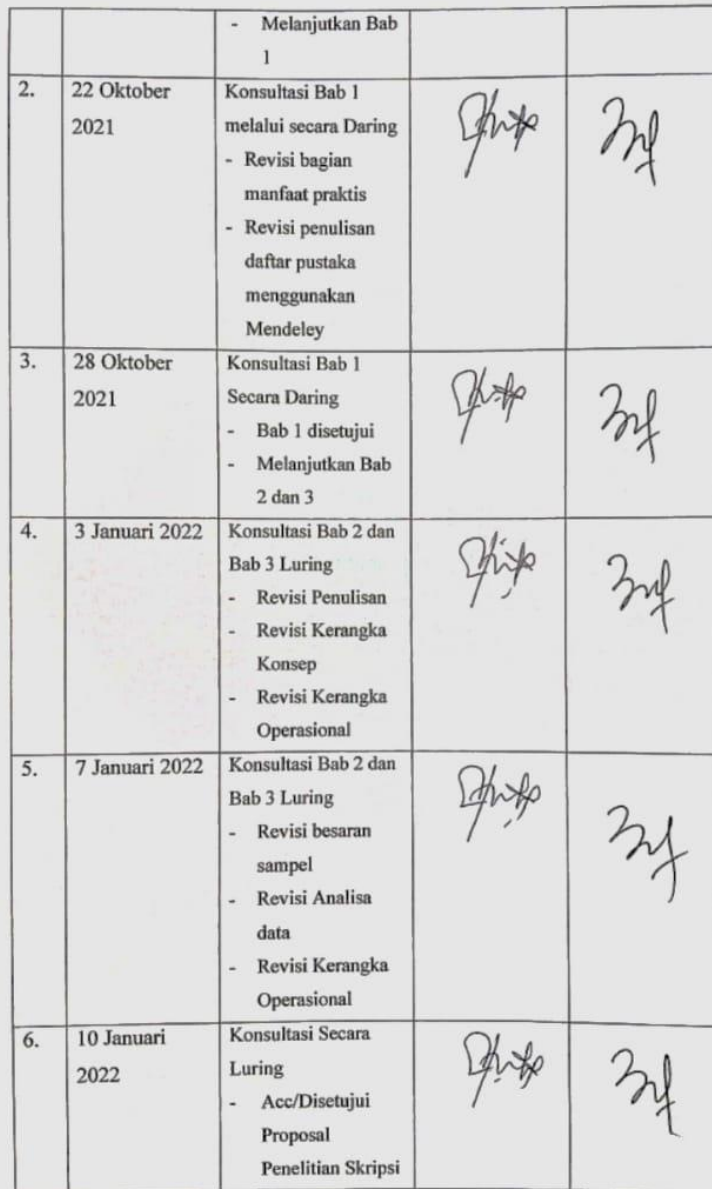 - Melanjutkan Bab
1
2. 22 Oktober 2021
Konsultasi Bab 1
melalui secara Daring
- Revisi bagian
manfaat praktis
- Revisi penulisan
daftar pustaka
menggunakan
Mendeley
3. 28 Oktober 2021
Konsultasi Bab 1
Secara Daring
- Bab 1 disetujui
- Melanjutkan Bab
2 dan 3
4. 3 Januari 2022
Konsultasi Bab 2 dan
Bab 3 Luring
- Revisi Penulisan
- Revisi Kerangka
Konsep
- Revisi Kerangka
Operasional
5. 7 Januari 2022
Konsultasi Bab 2 dan
Bab 3 Luring
- Revisi besaran
sampel
- Revisi Analisa
data
- Revisi Kerangka
Operasional
6. 10 Januari 2022
Konsultasi Secara
Luring
- Acc/Disetujui
Proposal
Penelitian Skripsi